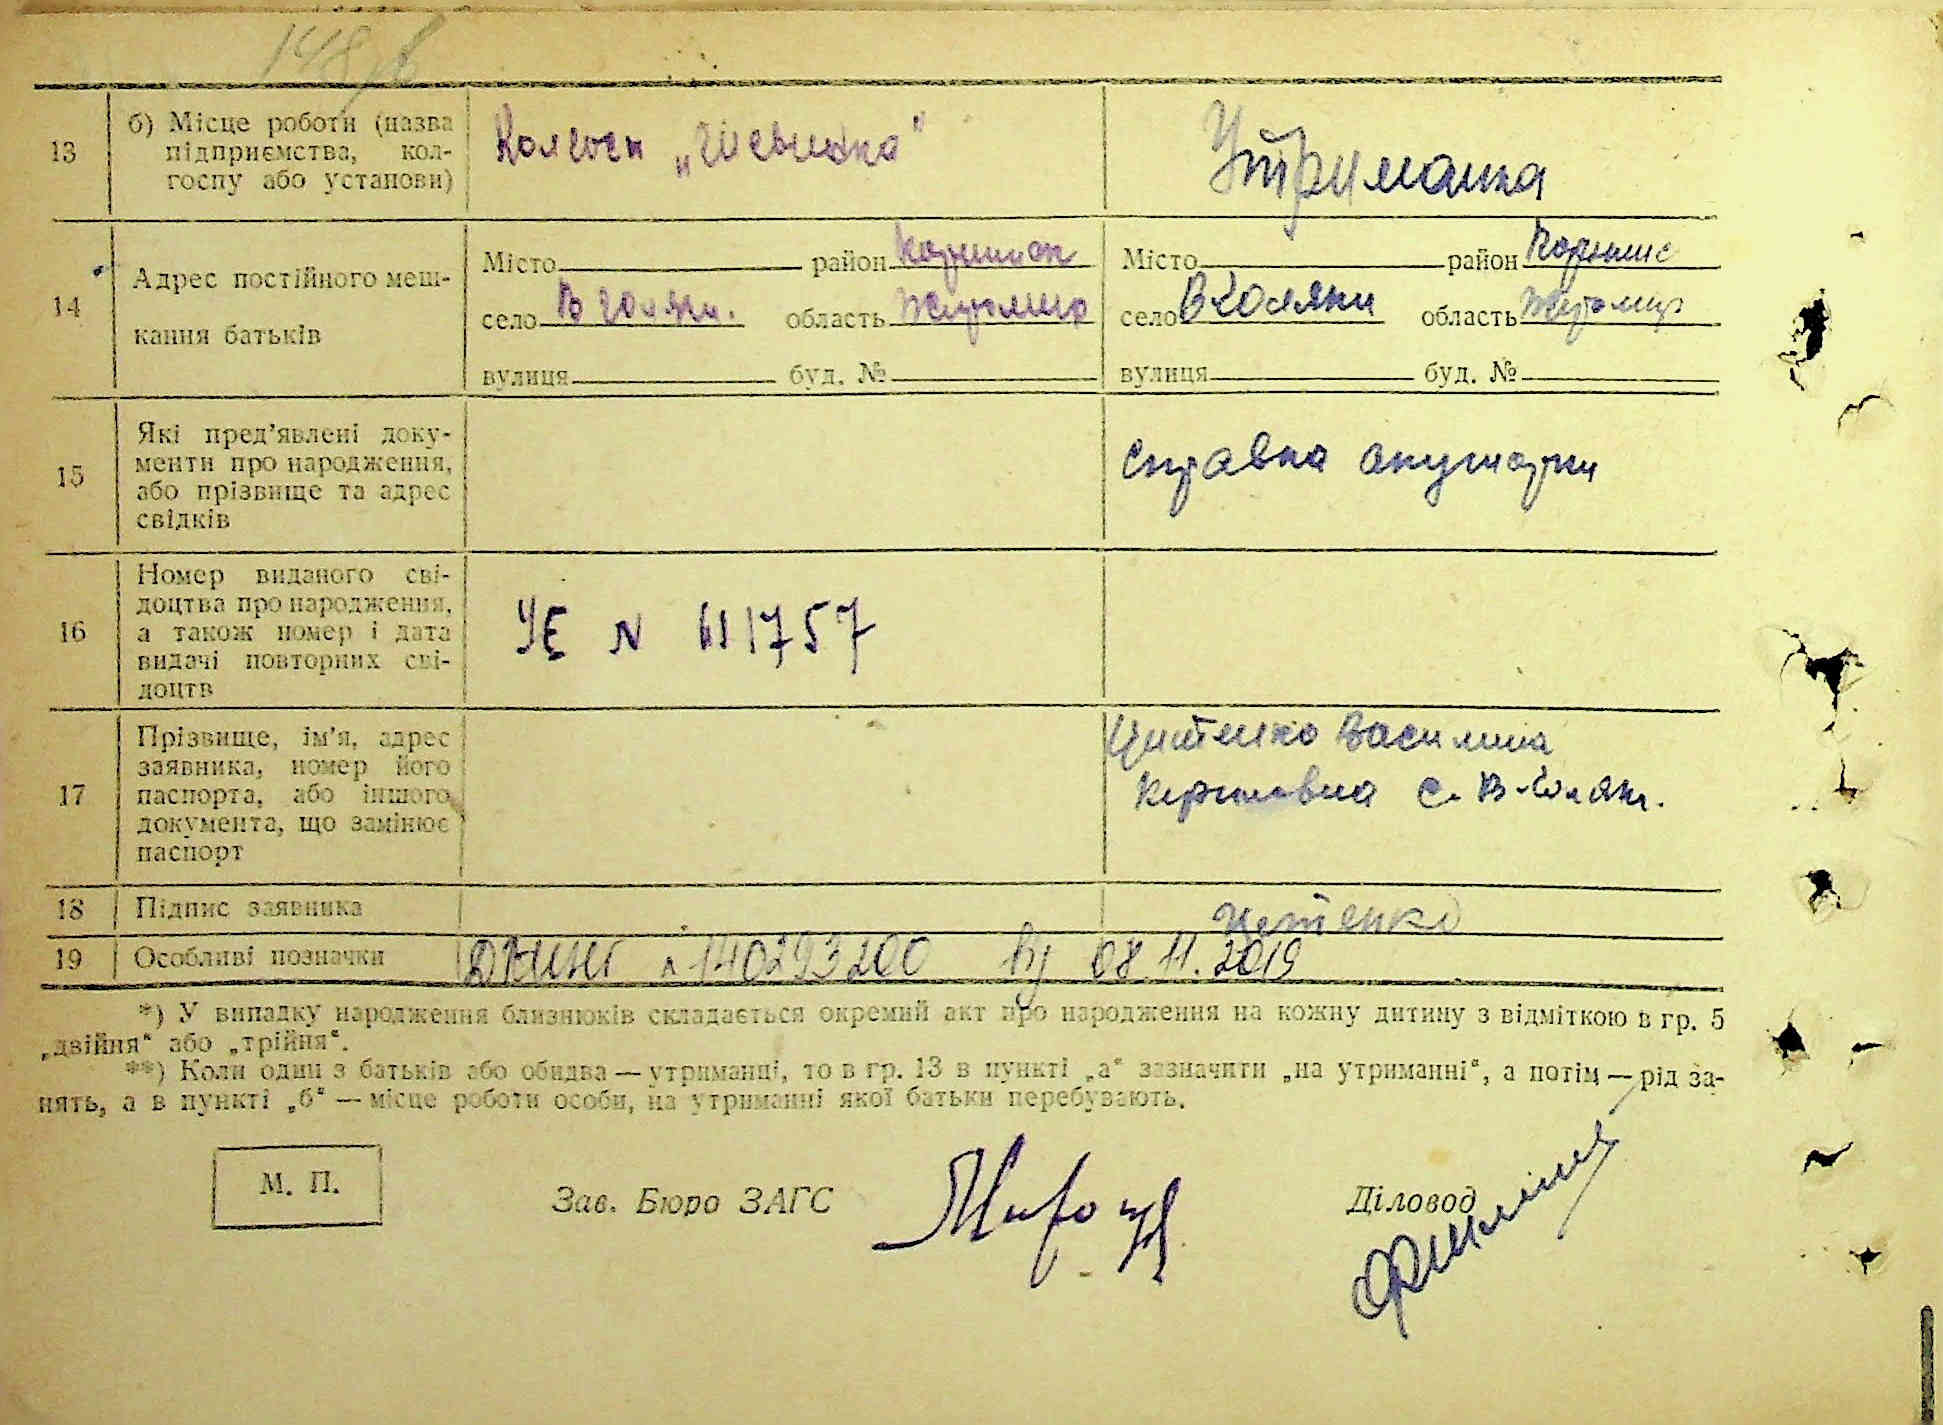 13
б) Місце роботи (назва
підприємства, кол-
госпу або установи)
Колгосп „Шевченка"
Утриманка
14
Адрес постійного меш-
кання батьків
Місто район
село область Житомир
вулиця буд. №
Місто район
село В-Голяки область Житомир
вулиця буд. №
15
Які пред'явлені доку-
менти про народження,
або прізвище та адрес
свідків
справка акушорки
16
Номер виданого сві-
доцтва про народження,
а також номер і дата
видачі повторних сві-
доцтв
УЄ N 611757
17
Прізвище, ім'я, адрес
заявника, номер його
паспорта, або іншого
документа, що замінює
паспорт
Василина
с. В-Голяк.
18
Підпис заявника
19
Особливі позначки
140293200 від 08.11.2019
*) У випадку народження близнюків складається окремий акт про народження на кожну дитину з відміткою в гр. 5
„двійня" або „трійня".
**) Коли один з батьків або обидва — утриманці, то в гр. 13 в пункті „а" зазначити „на утриманні", а потім — рід за-
нять, а в пункті „б" — місце роботи особи, на утриманні якої батьки перебувають.
М. П.
Зав. Бюро ЗАГС
Діловод